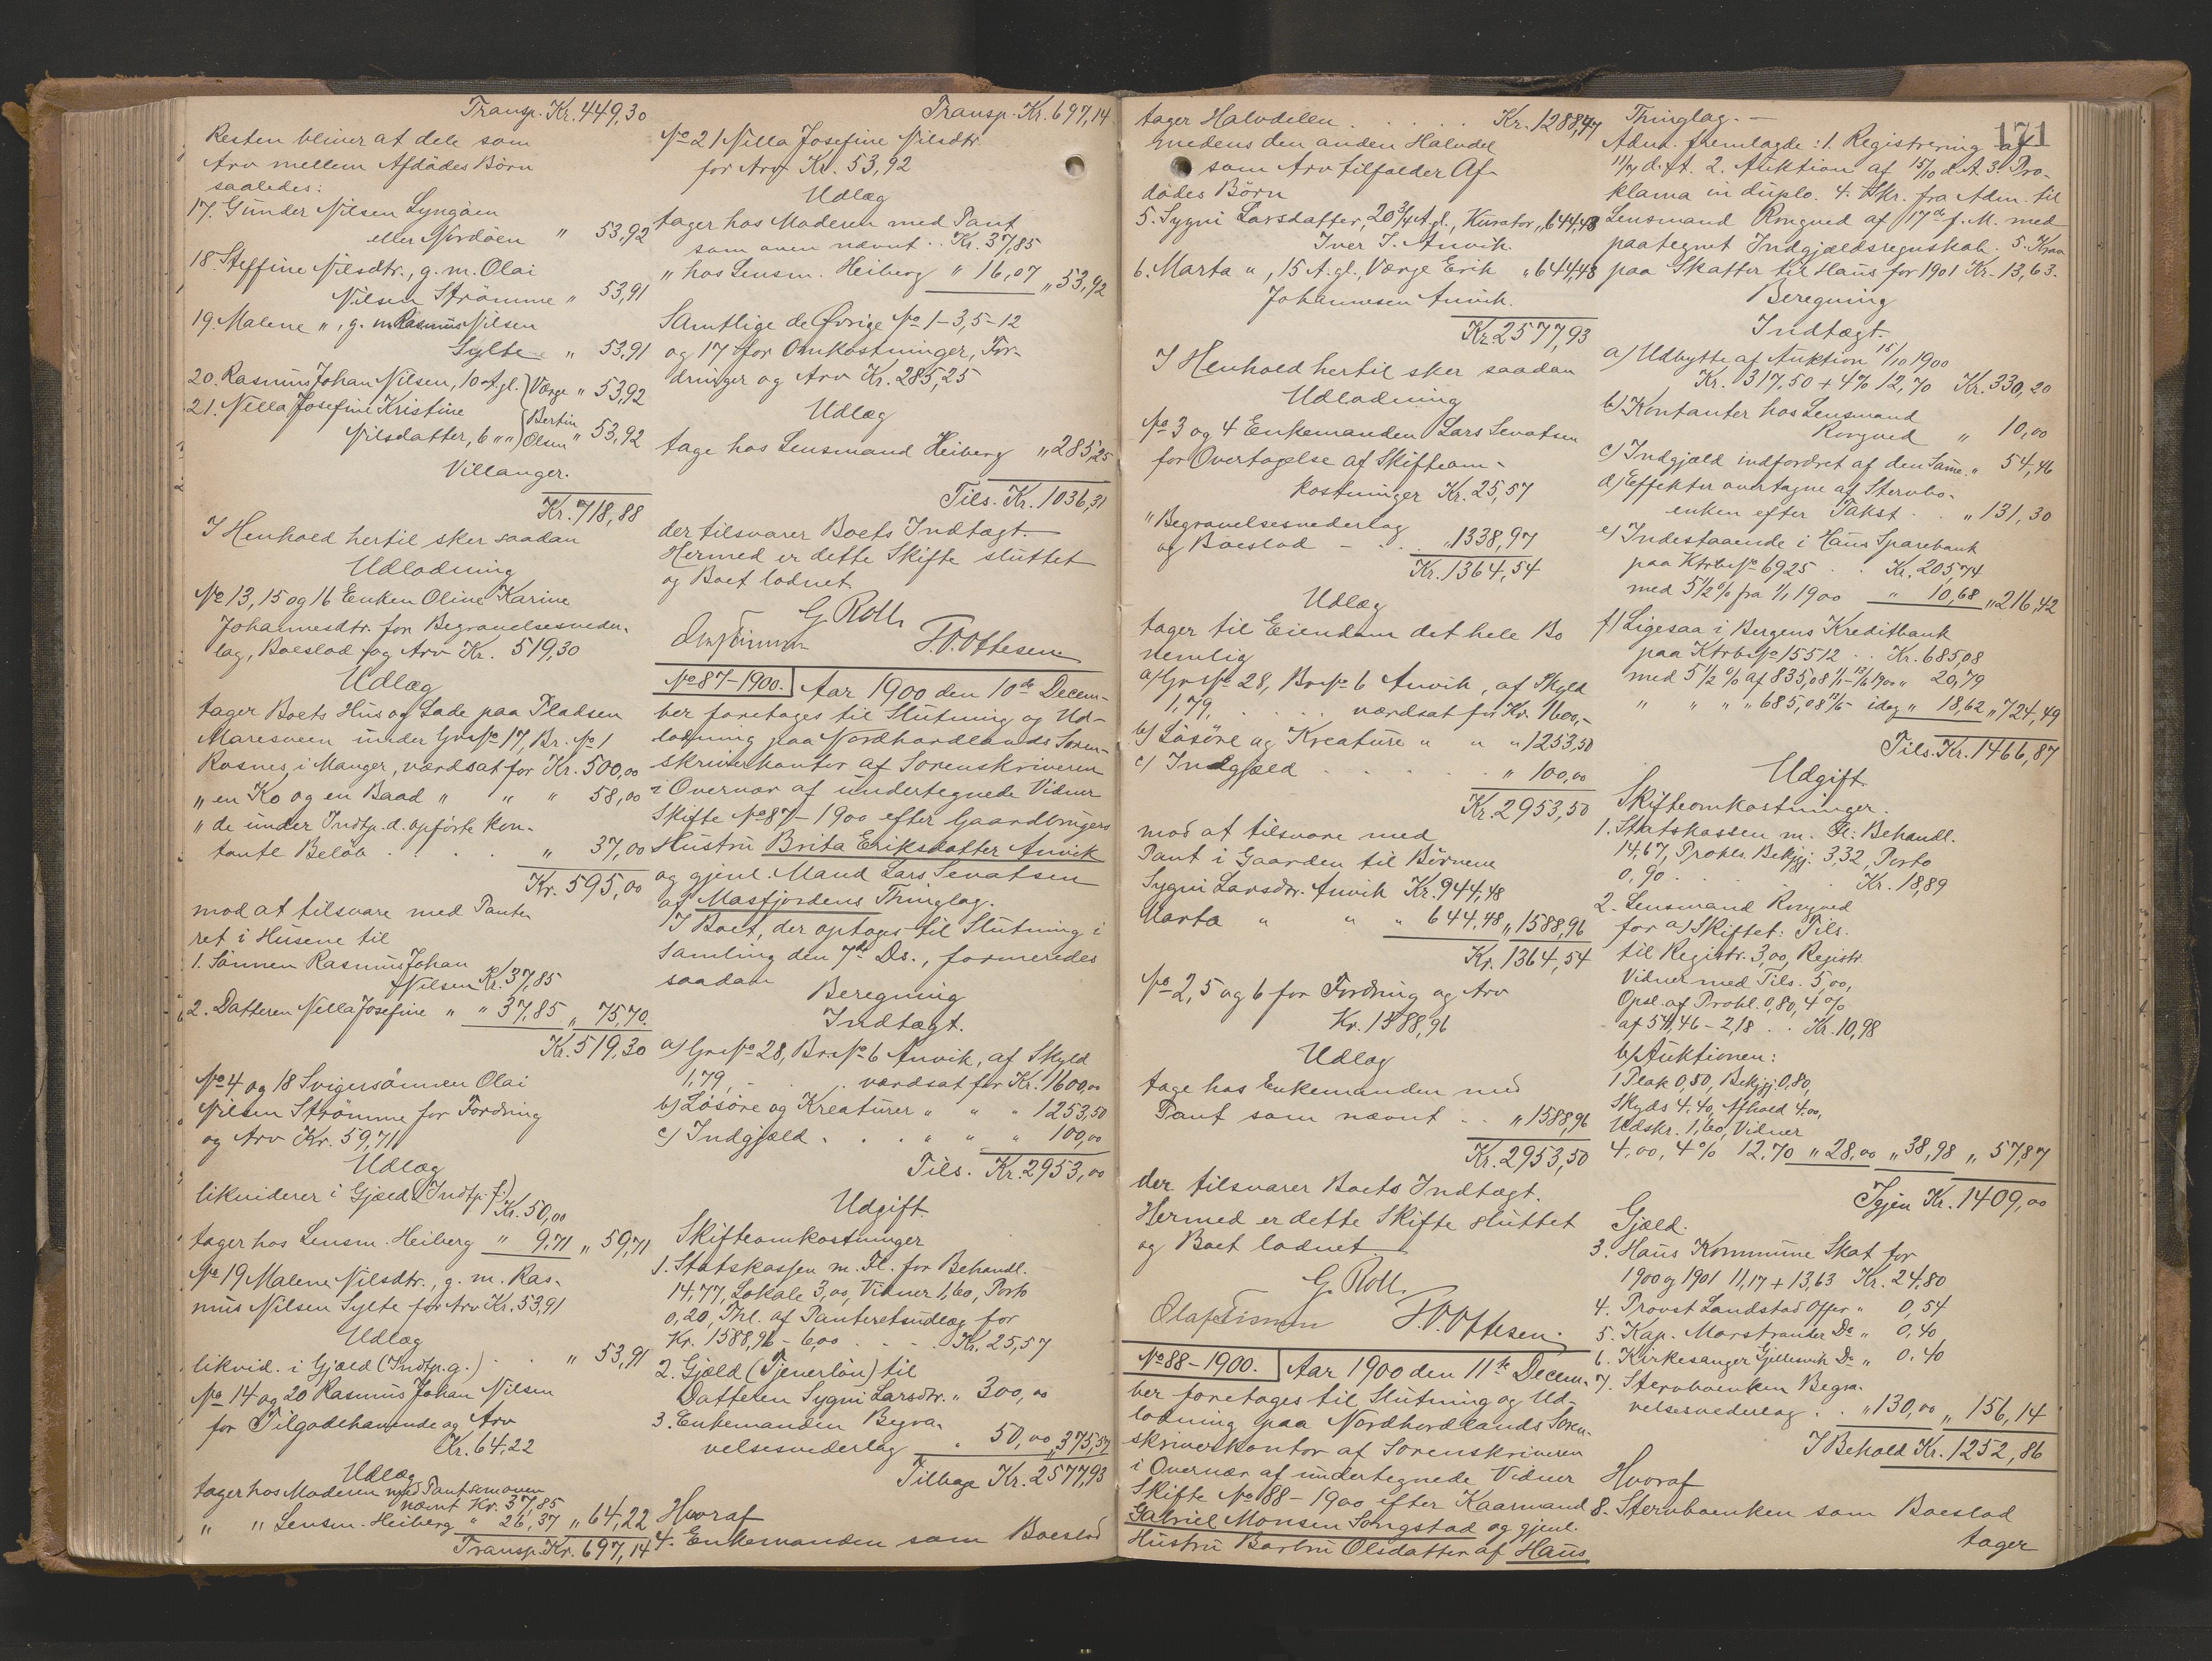 Transp. Kr. 449,30
Resten bliver at dele som
Arv mellem Afdödes Börn
saaledes:
17. Gunder Nilsen Lyngöen
eller Nordöen " 53,92
18. Steffine Nilsdtr., g. m. Olai
Nilsen Strömme " 53,91
19. Malene ", g. m. Rasmus Nilsen
Sylte " 53,91
20. Rasmus Johan Nilsen, 10 A. gl. } Værge " 53,92
21. Nilla Josefine Kristine } Bertin
Nilsdatter, 6 " " } Olsen " 53,92
Villanger.
Kr. 718,88
I Henhold hertil sker saadan
Udlodning
No 13, 15 og 16 Enken Oline Karine
Johannesdtr. for Begravelsesveder-
lag, Boeslod og Arv Kr. 519,30
Udlæg
tager Boets Hus og Lade paa Pladsen
Maresveen under Gr. No 17, Br. No 1
Rosnes i Manger, værdsat for Kr. 500,00
" en Ko og en Baad " " " 58,00
" de under Indtp. d. opförte kon-
tante Belöb . . . . " 37,00
Kr. 595,00
mod at tilsvare med Pante-
ret i Husene til
1. Sönnen Rasmus Johan
Nilsen Kr. 37,85
2. Datteren Nilla Josefine " " 37,85 " 75,70.
Kr. 519,30
No 4 og 18 Svigersönnen Olai
Nilsen Strömme for Fordring
og Arv Kr. 59,71
Udlæg
likviderer i Gjæld (Indtp. f.) Kr. 50,00
tager hos Lensm. Heiberg " 9,71 " 59,71
No 19 Malene Nilsdtr., g. m. Ras-
mus Nilsen Sylte for Arv Kr. 53,91
Udlæg
likvid. i Gjæld (Indtp. g.) . . " 53,91
No 14 og 20 Rasmus Johan Nilsen
for Tilgodehavende og Arv
Kr. 64,22
Udlæg
tager hos Moderen med Pant som oven
nævnt Kr. 37,85
" " Lensm. Heiberg " 26,37 " 64,22
Transp. Kr. 697,14
Transp. Kr. 697,14
No 21 Nilla Josefine Nilsdtr.
for Arv Kr. 53,92
Udlæg
tager hos Moderen med Pant
som oven nævnt . . Kr. 37,85
" hos Lensm. Heiberg " 16,07 " 53,92
Samtlige de Övrige No 1-3, 5-12
og 17 for Omkostninger, For-
dringer og Arv Kr. 285,25
Udlæg
tage hos Lensmand Heiberg " 285,25
Tils. Kr. 1036,31
der tilsvarer Boets Indtægt.
Hermed er dette Skifte sluttet
og Boet lodnet
G. Roll
F. O. Ottesen
No 87-1900. Aar 1900 den 10de Decem-
ber foretages til Slutning og Ud-
lodning paa Nordhordlands Soren-
skriverkontor af Sorenskriveren
i Overvær af undertegnede Vidner
Skifte No 87-1900 efter Gaardbrugers
Hustru Brita Eriksdatter Anvik
og gjenl. Mand Lars Sevatsen
af Masfjordens Thinglag.
I Boet, der optoges til Slutning i
Samling den 7de Ds., formeredes
saadan
Beregning
Indtægt.
a) Gr. No 28, Br. No 6 Anvik, af Skyld
1,79, . . . værdsat for Kr. 1600,00
b) Lösöre og Kreaturer " " " 1253,50
c) Indgjæld . . . " " " 100,00
Tils. Kr. 2953,00
Udgift.
Skifteomkostninger
1. Statskassen m. Fl. for Behandl.
14,77, Lokale 3,00, Vidner 1,60, Porto
0,20, Thl. af Panteretsudlæg for
Kr. 1588,96 - 6,00 . . . Kr. 25,57
2. Gjæld (Tjenerlön) til
Datteren Sygni Larsdtr. " 300,00
3. Enkemanden Begra-
velsesvederlag " 50,00 " 375,57
Tilbage Kr. 2577,93
Hvoraf
4. Enkemanden som Boeslod
tager Halvdelen . . . . . Kr. 1288,97
medens den anden Halvdel
som Arv tilfalder Af-
dödes Börn
5. Sygni Larsdatter, 20 3/4 A. gl., Kurator " 644,48
Iver J. Anvik.
6. Marta ", 15 A. gl., Værge Erik " 644,48
Johannesen Anvik.
Kr. 2577,93
I Henhold hertil sker saadan
Udlodning
No 3 og 4 Enkemanden Lars Sevatsen
for Overtagelse af Skifteom-
kostninger Kr. 25,57
" Begravelsesvederlag
og Boeslod - . . " 1338,97
Kr. 1364,54
Udlæg
tager til Eiendom det hele Bo
nemlig
a) Gr. No 28, Br. No 6 Anvik, af Skyld
1,79, . . . . værdsat for Kr. 1600,-
b) Lösöre og Kreature " " " 1253,50
c) Indgjæld . . . . . . " 100,00
Kr. 2953,50
mod at tilsvare med
Pant i Gaarden til Börnene
Sygni Larsdtr. Anvik Kr. 944,48
Marta " " " 644,48 " 1588,96
Kr. 1364,54
No 2, 5 og 6 for Fordring og Arv
Kr. 1588,96
Udlæg
tage hos Enkemanden med
Pant som nævnt . . " 1588,96
Kr. 2953,50
der tilsvarer Boets Indtægt.
Hermed er dette Skifte sluttet
og Boet lodnet.
G. Roll.
F. O. Ottesen.
No 88-1900. Aar 1900 den 11te Decem-
ber foretages til Slutning og Ud-
lodning paa Nordhordlands Soren-
skriverkontor af Sorenskriveren
i Overvær af undertegnede Vidner
Skifte No 88-1900 efter Kaarmand
Gabriel Monsen Songstad og gjenl.
Hustru Barbru Olsdatter af Haus
171
Thinglag. -
Adm. fremlagde: 1. Registrering af
11/4 d. A. 2. Auktion af 15/10 d. A. 3. Pro-
klama in duplo. 4. Skr. fra Adm. til
Lensmand Rongved af 17de f. M. med
paategnet Indgjældsregnskab. 5. Krav
paa Skatter til Haus for 1901 Kr. 13,63.
Beregning
Indtægt.
a) Udbytte af Auktion 15/10 1900
Kr. 317,50 + 4% 12,70 Kr. 330,20
b) Kontanter hos Lensmand
Rongved " 10,00
c) Indgjæld indfordret af den Samme " 54,46
d) Effekter overtagne af Stervbo-
enken efter Takst . . " 131,30
e) Indestaaende i Haus Sparebank
paa Ktrb. No 6925 . . Kr. 205,74
med 5 1/2 % fra 1/1 1900 " 10,68 " 216,42
f) Ligesaa i Bergens Kreditbank
paa Ktrb. No 15512 . . Kr. 685,08
med 5 1/2 % af 835,08 1/1-12/6 1900 " 20,79
" " " " 685,08 12/6 - idag " 18,62 " 724,49
Tils. Kr. 1466,87
Udgift.
Skifteomkostninger.
1. Statskassen m. Fl.: Behandl.
14,67, Prokls. Bekjg. 3,32, Porto
0,90 . . . . Kr. 18,89
2. Lensmand Rongved
for a) Skiftet: Tils.
til Registr. 3,00, Registr.
Vidner med Tils. 5,00,
Opsl. af Prokl. 0,80, 4 %
af 54,46 - 2,18 . . Kr. 10,98
b) Auktionen:
1 Plak 0,50, Bekjg. 0,80,
Skyds 4,40, Afhold 4,00,
Udskr. 1,60, Vidner
4,00, 4% 12,70 " 28,00 " 38,98 " 57,87
Igjen Kr. 1409,00
Gjæld.
3. Haus Kommune Skat for
1900 og 1901 11,17 + 13,63 Kr. 24,80
4. Provst Landstad Offer " 0,54
5. Kap. Morstrander Do " 0,40
6. Kirkesanger Gjellesvik Do " 0,40
7. Stervboenken Begra-
velsesvederlag . . " 130,00 " 156,14
I Behold Kr. 1252,86
Hvoraf
8. Stervboenken som Boeslod
tager